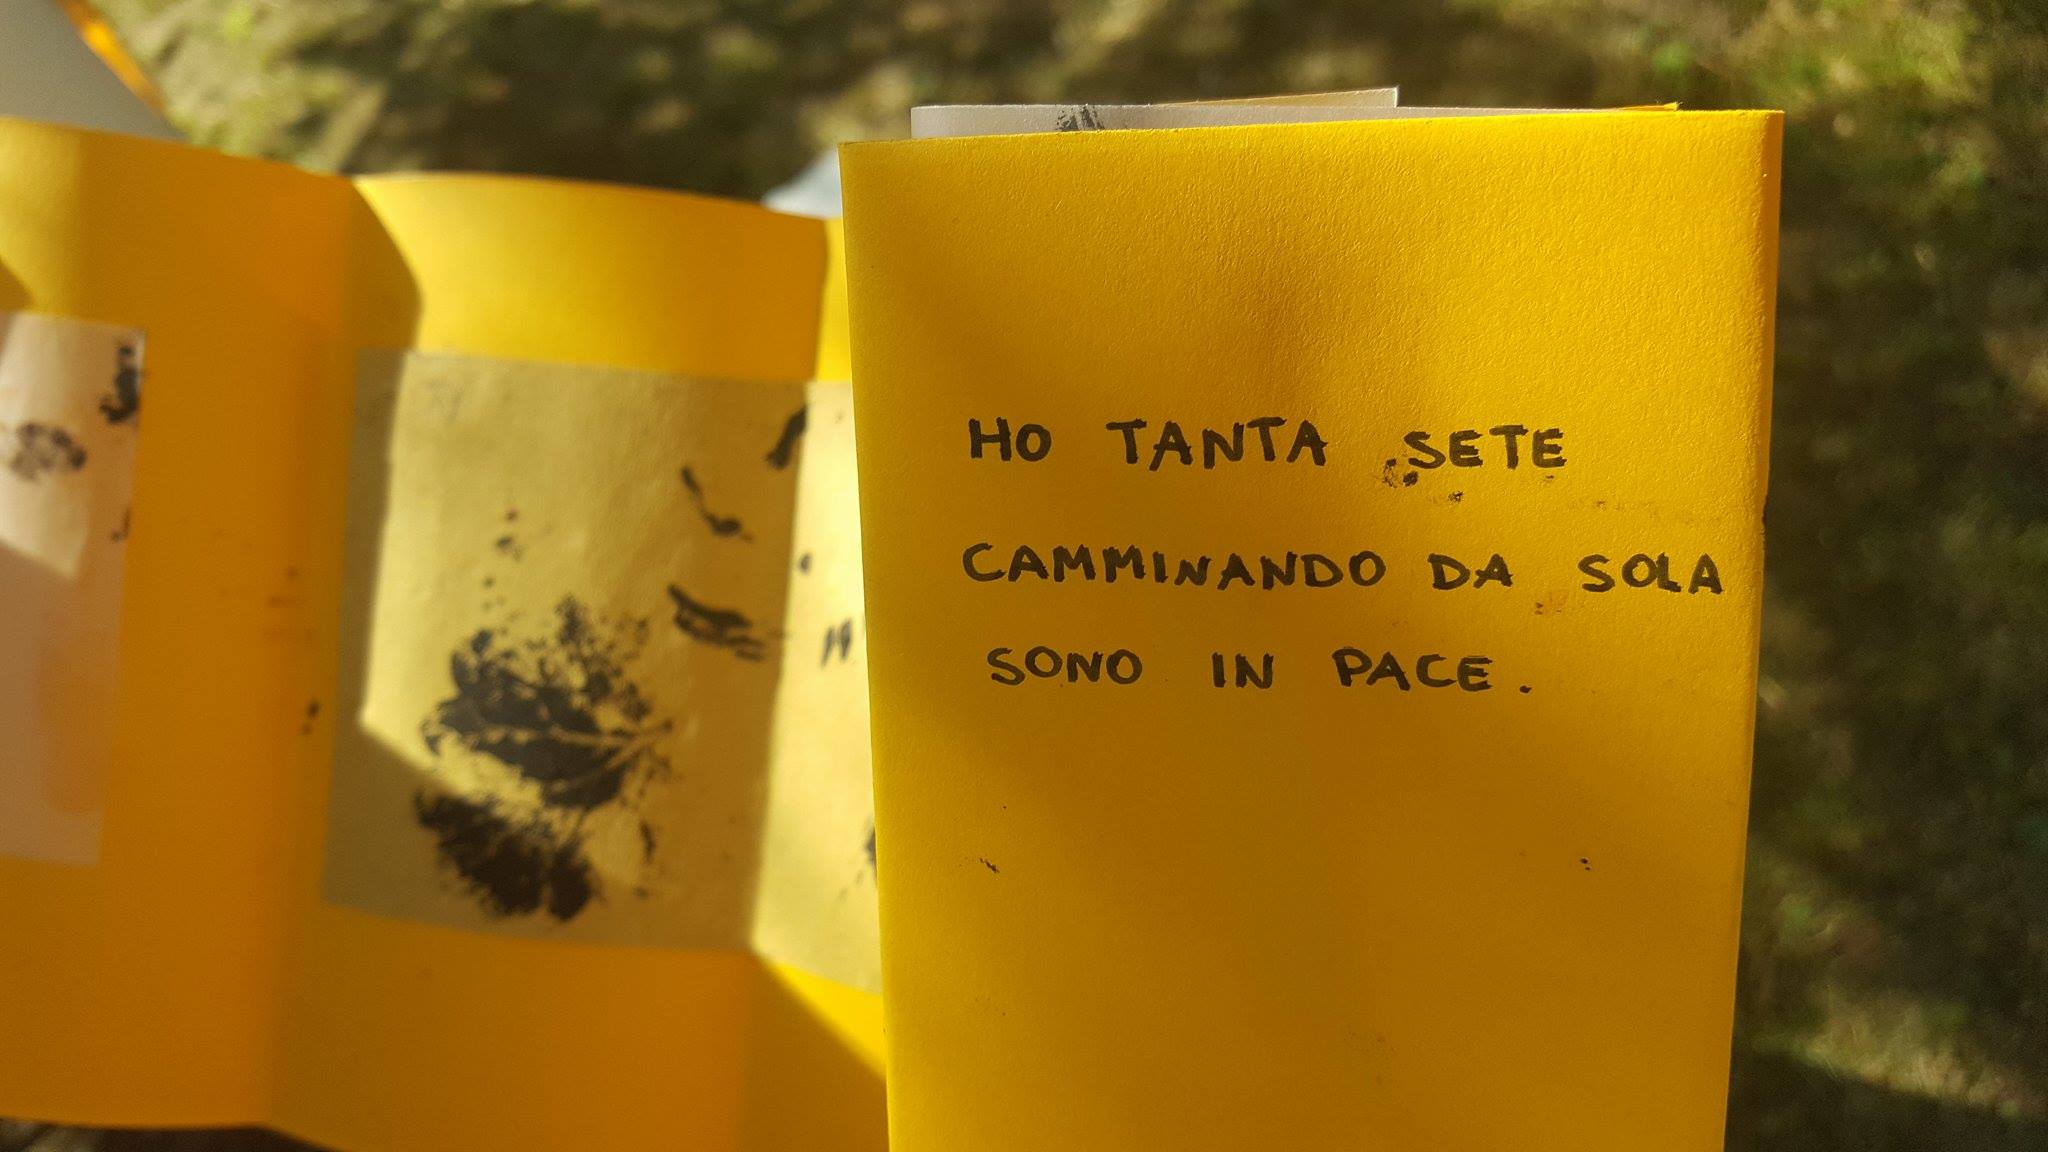 HO TANTA SETE
CAMMINANDO DA SOLA
SONO IN PACE.